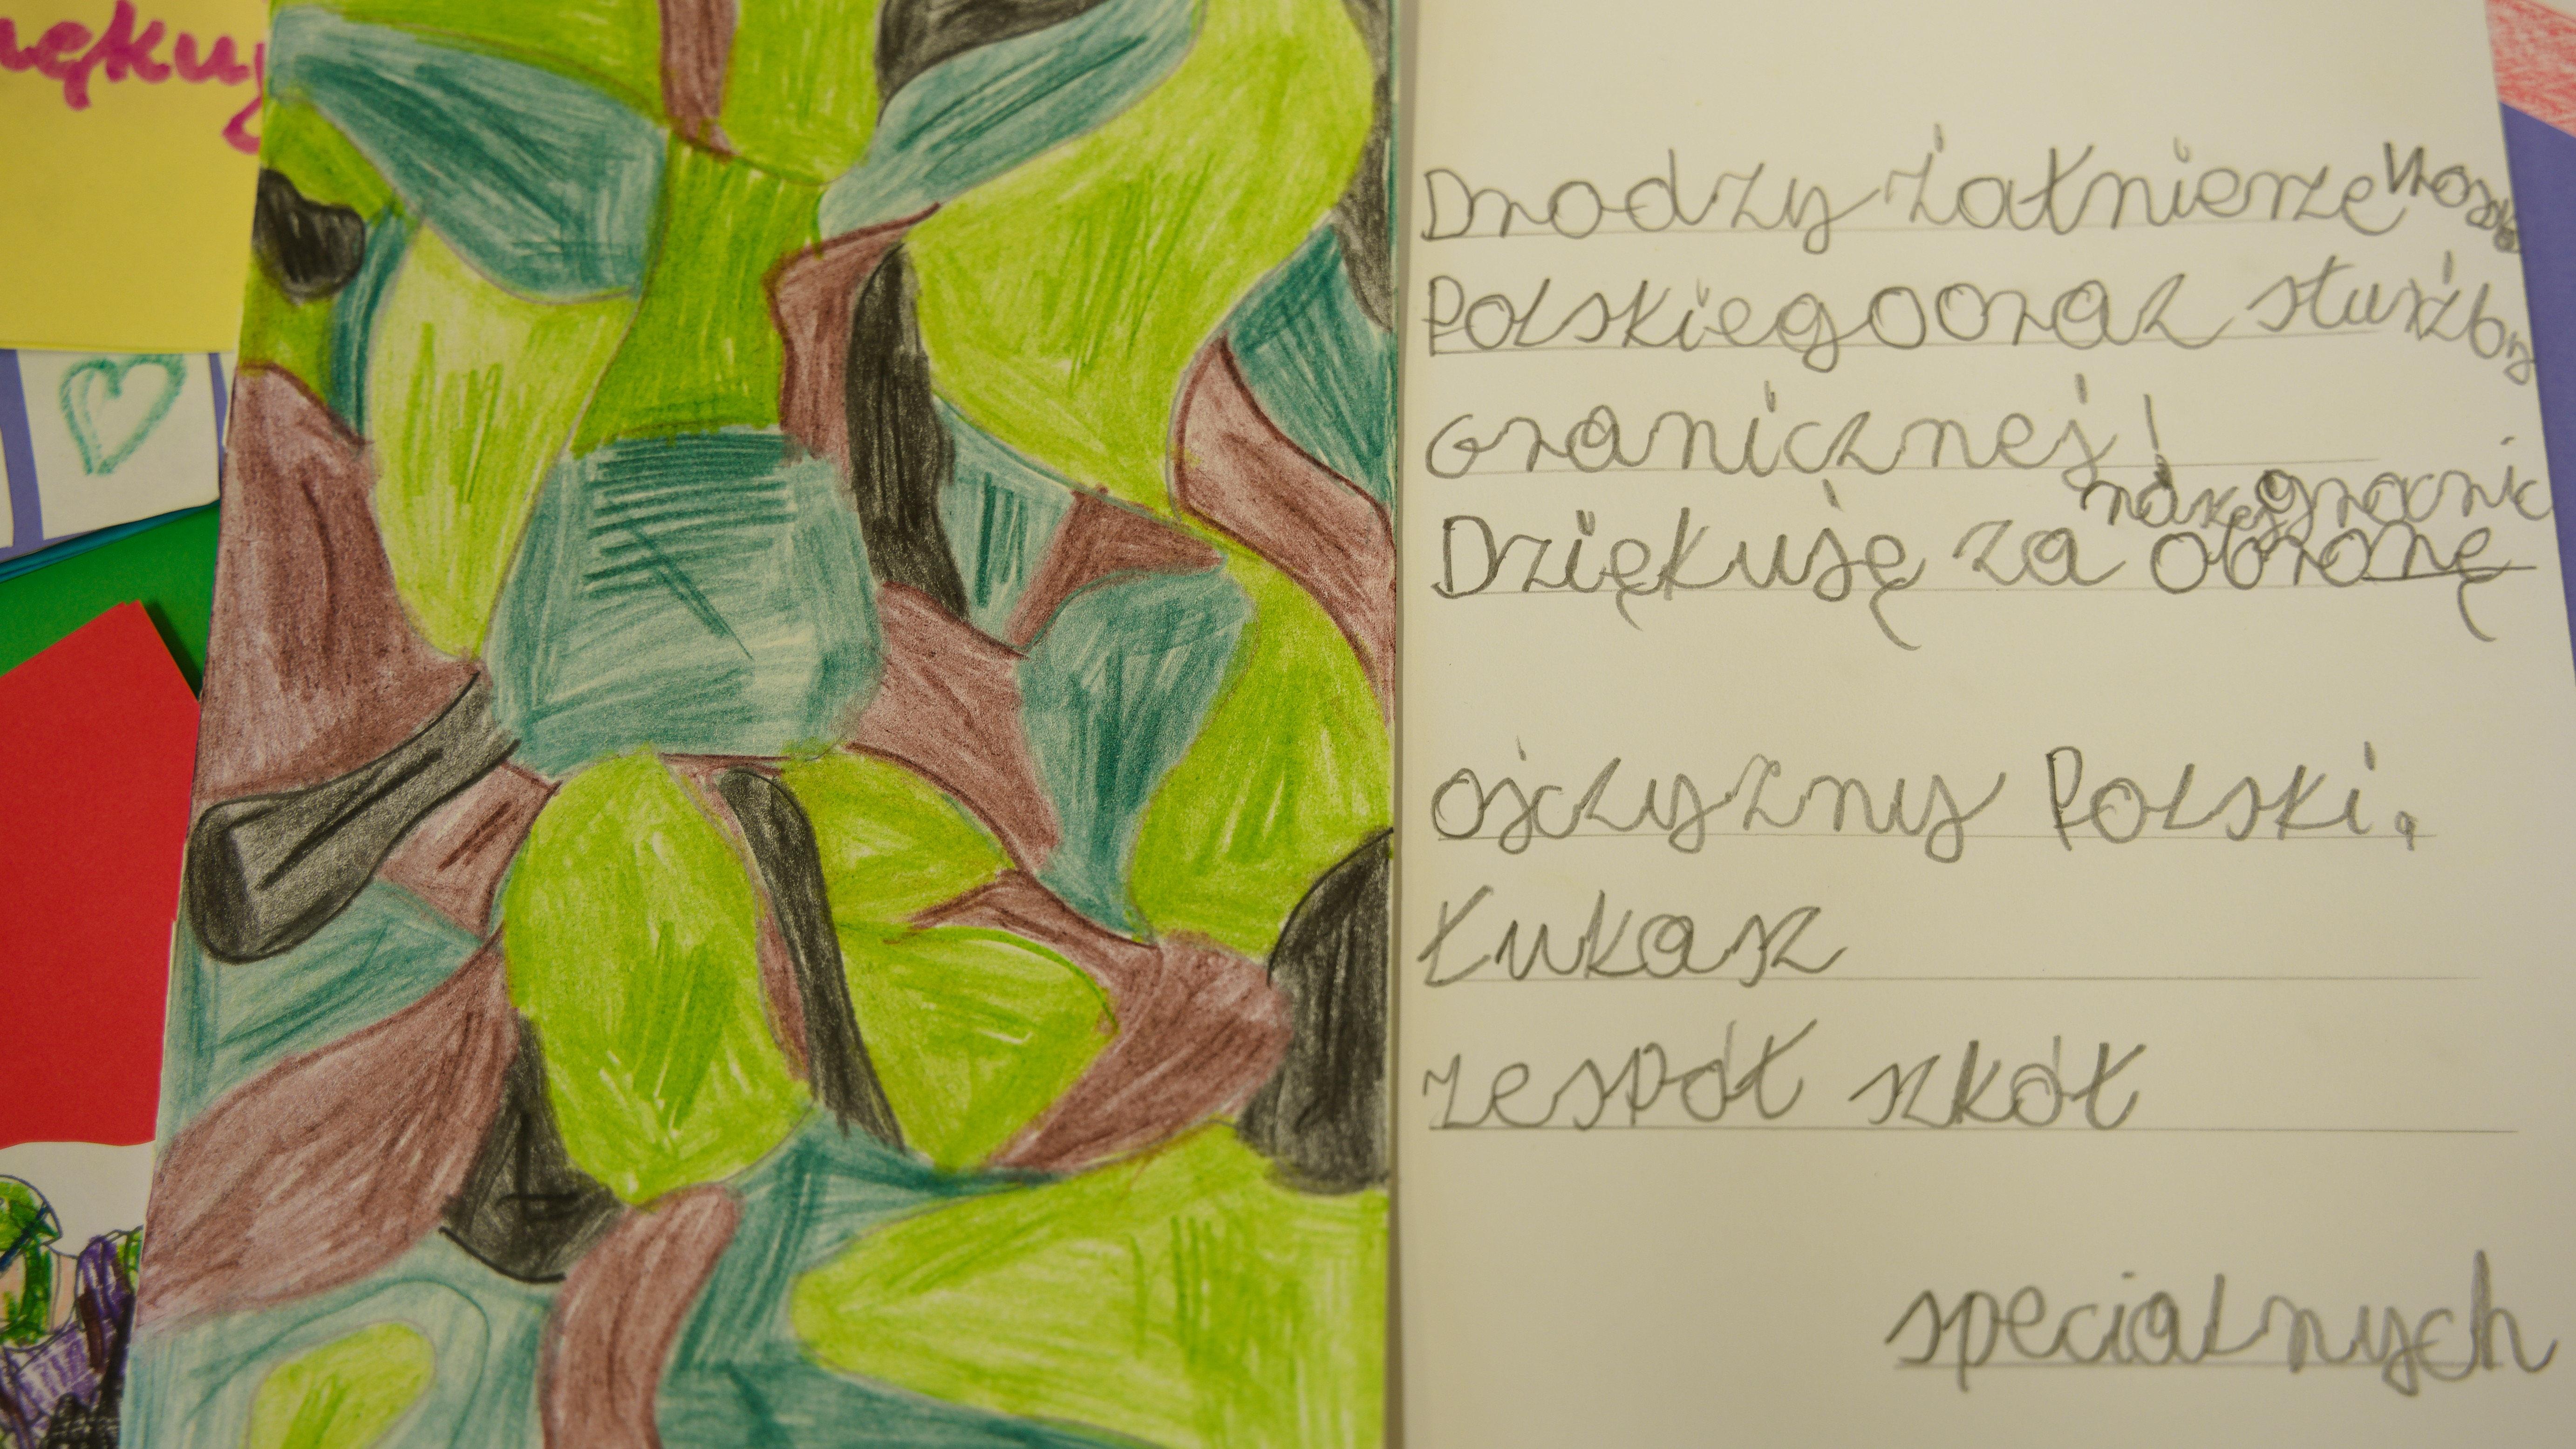 ziękuj
Drodzy żałnierze
Polskiego oraz służby
Granicznej!
naszej granic
Dziękuję za obronę
ojczyzny Polski.
Łukasz
zespół szkół
specialnych